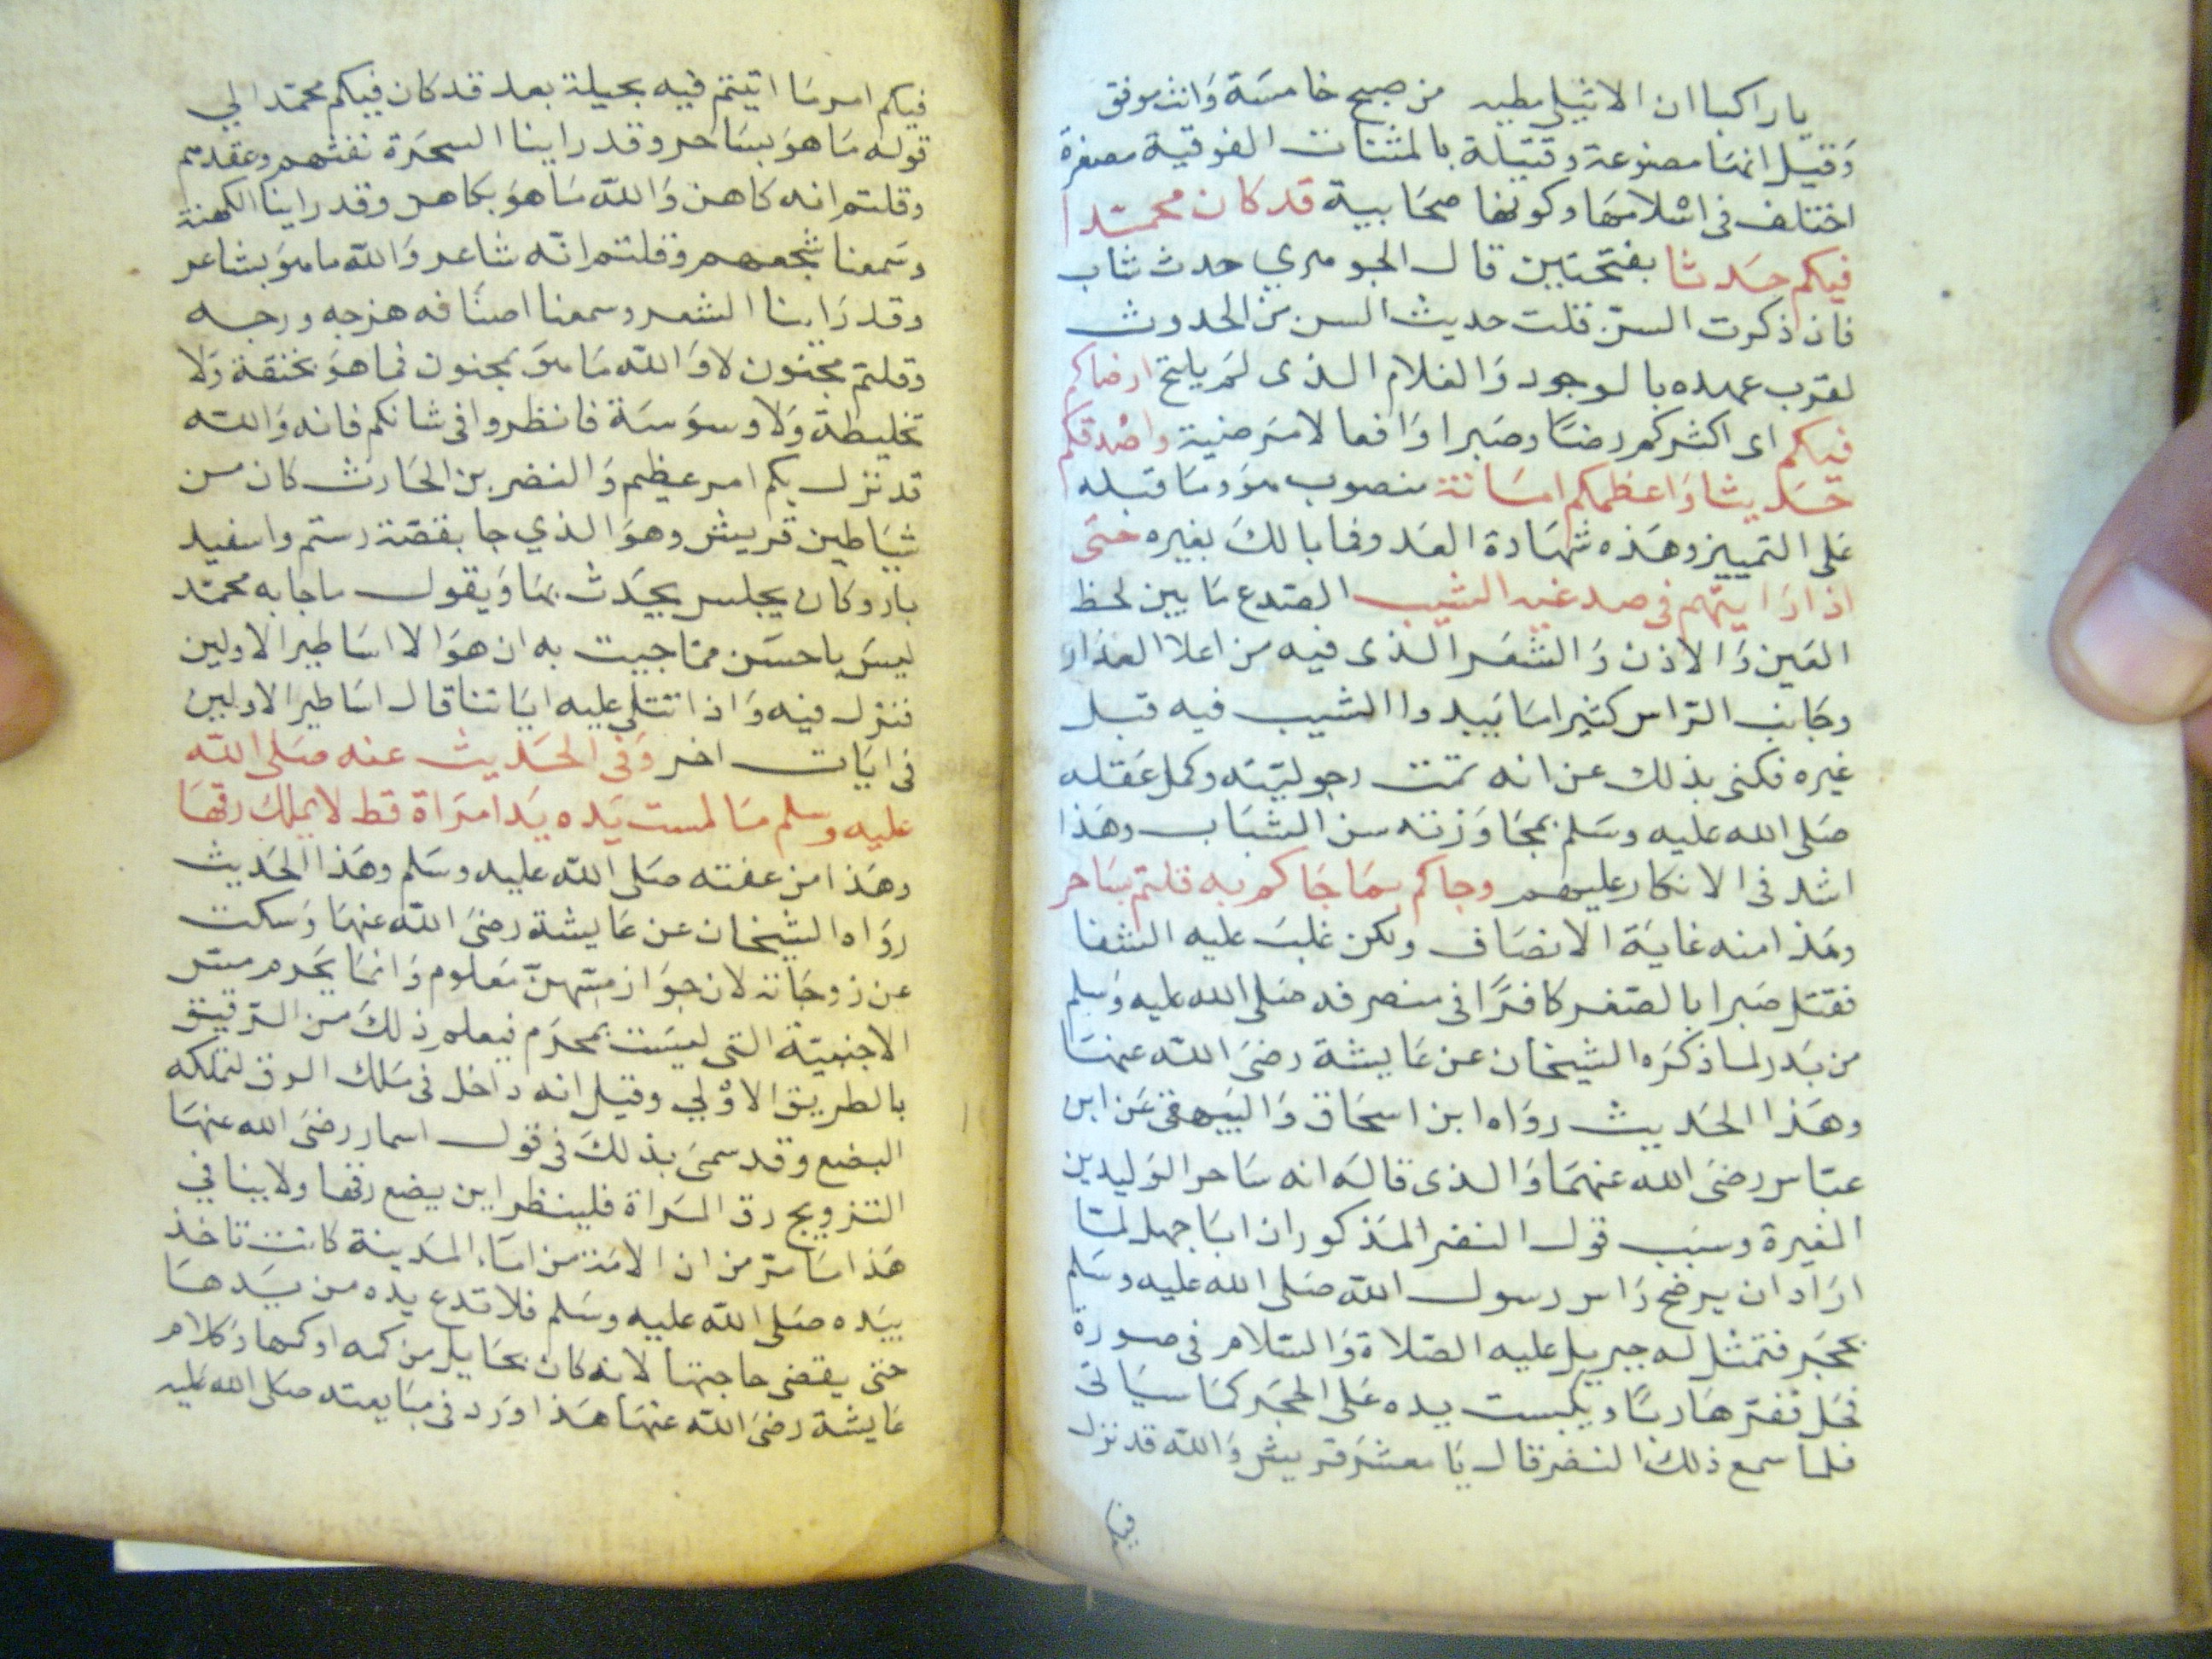 يا راكبا ان الاثيل مطيه من صبح خامسة وانت موفق
وقيل انها مصنوعة وقتيلة بالمثنات الفوقية مصغرة
اختلف في اسلامها وكونها صحابية قد كان محمدا
فيكم حدثا بفتحتين قال الجوهري حدث شاب
فان ذكرت السن قلت حديث السن من الحدوث
لقرب عهده بالوجود والغلام الذى لم يلتح ارضاكم
فيكم اى اكثركم رضا وصبرا وافعالا مرضية واصدقكم
حديثا واعظمكم امانة منصوب هو وما قبله
على التمييز وهذه شهادة العدو فما بالك بغيره حتى
اذا رايتم في صدغيه الشيب الصدع ما بين لحظ
العين والاذن والشعر الذى فيه من اعلا العذار
وجانب الراس كثيرا ما يبدوا الشيب فيه قبل
غيره فكنى بذلك عن انه تمت رجوليته وكمل عقله
صلى الله عليه وسلم بمجاوزته سن الشباب وهذا
اشد في الانكار عليهم وجاكم بما جاكم به قلتم ساحر
وهذا منه غاية الانصاف ولكن غلب عليه الشقا
فقتل صبرا بالصفر كافرًا في منصرفه صلى الله عليه وسلم
من بدر لما ذكره الشيخان عن عايشة رضى الله عنها
وهذا الحديث رواه ابن اسحاق والبيهقى عن ابن
عباس رضى الله عنهما والذى قاله انه ساحر الوليد بن
المغيرة وسبب قول النضر المذكور ان ابا جهل لما
اراد ان يرضح راس رسول الله صلى الله عليه وسلم
بحجر فتمثل له جبريل عليه الصلاة والسلام في صورة
فحل ففر هاربًا ويبست يده على الحجر كما سياتى
فلما سمع ذلك النضر قال يا معشر قريش والله قد نزل
فيكم امر ما اتيتم فيه بحيلة بعد قد كان فيكم محمد الي
قوله ما هو بساحر وقد راينا السحرة نفثهم وعقدهم
وقلتم انه كاهن والله ما هو بكاهن وقد راينا الكهنة
وسمعنا سجعهم وقلتم انه شاعر والله ما هو بشاعر
وقد راينا الشعر وسمعنا اصنافه هزجه ورجه
وقلتم مجنون لا والله ما هو بمجنون فما هو بخنقة ولا
تخليطة ولا وسوسة فانظروا في شانكم فانه والله
قد نزل بكم امر عظيم والنضر بن الحارث كان من
شياطين قريش وهو الذي جا بقصة رستم واسفيد
يار وكان يجلس يحدث بها ويقول ما جا به محمد
ليس باحسن مما جيت به ان هو الا اساطير الاولين
فنزل فيه واذا تتلى عليه اياتنا قال اساطير الاولين
في ايات اخر وفي الحديث عنه صلى الله
عليه وسلم ما لمست يده يد امراة قط لا يملك رقها
وهذا من عفته صلى الله عليه وسلم وهذا الحديث
رواه الشيخان عن عايشة رضى الله عنها وسكت
عن زوجاته لان جواز مسهن معلوم وانما يحرم مس
الاجنبية التى ليست بمحرم فيعلم ذلك من الترقيق
بالطريق الاولي وقيل انه داخل في سلك الرق لتملكه
البضع وقد سمى بذلك في قول اسمار رضى الله عنها
التزويج رق المراة فلينظر اين يضع رقها ولا ينافي
هذا ما مر من ان الامة من اماء المدينة كانت تاخذ
بيده صلى الله عليه وسلم فلا تدع يده من يدها
حتى يقضى حاجتها لانه كان بحايل من كمه او كمها وكلام
عايشة رضى الله عنها هذا ورد في مبايعته صلى الله عليه